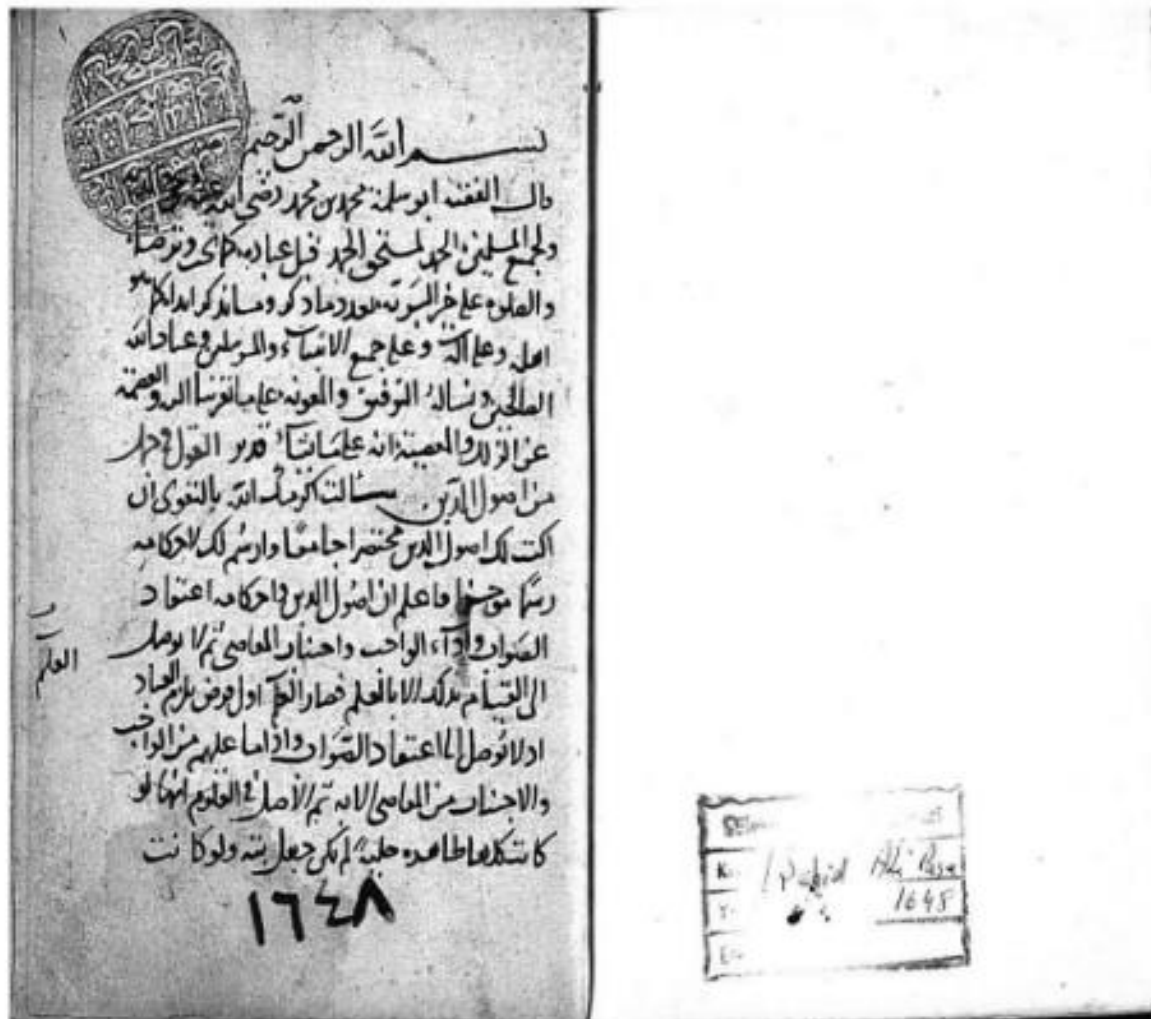 بسم الله الرحمن الرحيم
قال الفقيه ابو سلمة محمد بن محمد رضي الله عنه
ولجميع المسلمين الحمد لمستحق الحمد قبل عباده كما يحب ويرضاه
والصلوة على خير البرية بعدد ما ذكر وما سيذكر ابدا كما هو
اهله وعلى آله وعلى جميع الانبياء والمرسلين وعباد الله
الصالحين ونساله التوفيق والمعونة على ما يقربنا اليه والعصمة
عن الزلل والمعصية انه على ما يشاء قدير القول في جمل
من اصول الدين سالت اكرمك الله بالتقوى ان
اكتب لك اصول الدين مختصرا جامعا وارسم لك لاحكامه
رسما موجزا فاعلم ان اصول الدين في احكامه اعتقاد
الصواب واداء الواجب واجتناب المعاصي ثم لا يوصل
الى القيام بذلك الا بالعلم فصار العلم اول فرض يلزم العباد
اذ لا يوصل الى اعتقاد الصواب واداء ما عليهم من الواجب
والاجتناب من المعاصي الا به ثم الاصل في العلوم انها لو
كانت كلها ظاهره جلية لم يكن جهل بته ولو كانت
العلم
١٦٤٨
Ali Paşa
1648